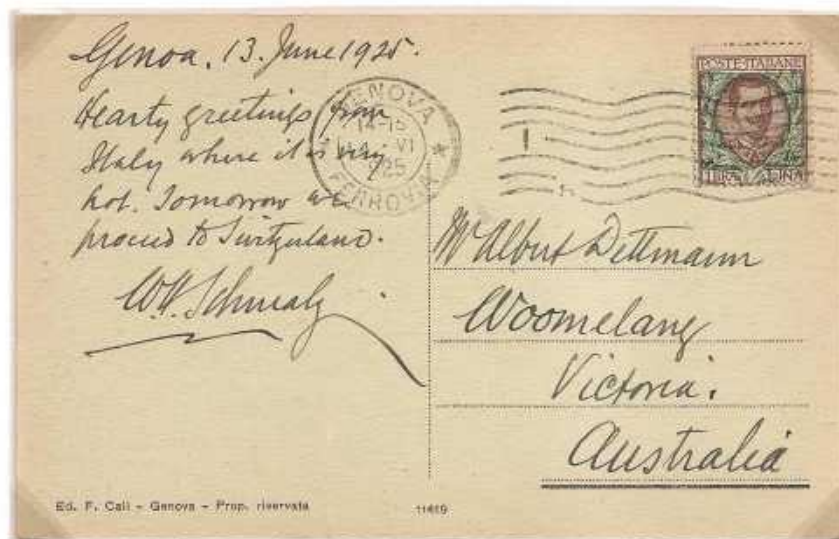 Genoa, 13. June 1925.
Hearty greetings from
Italy where it is very
hot. Tomorrow we
proceed to Switzerland.
W.H. Schmalz
GENOVA
14-15
VI
1925
FERROVIA
POSTE ITALIANE
LIRA UNA
Mr Albert Dettmann
Woomelang
Victoria.
Australia
Ed. F. Cali - Genova - Prop. riservata
11419